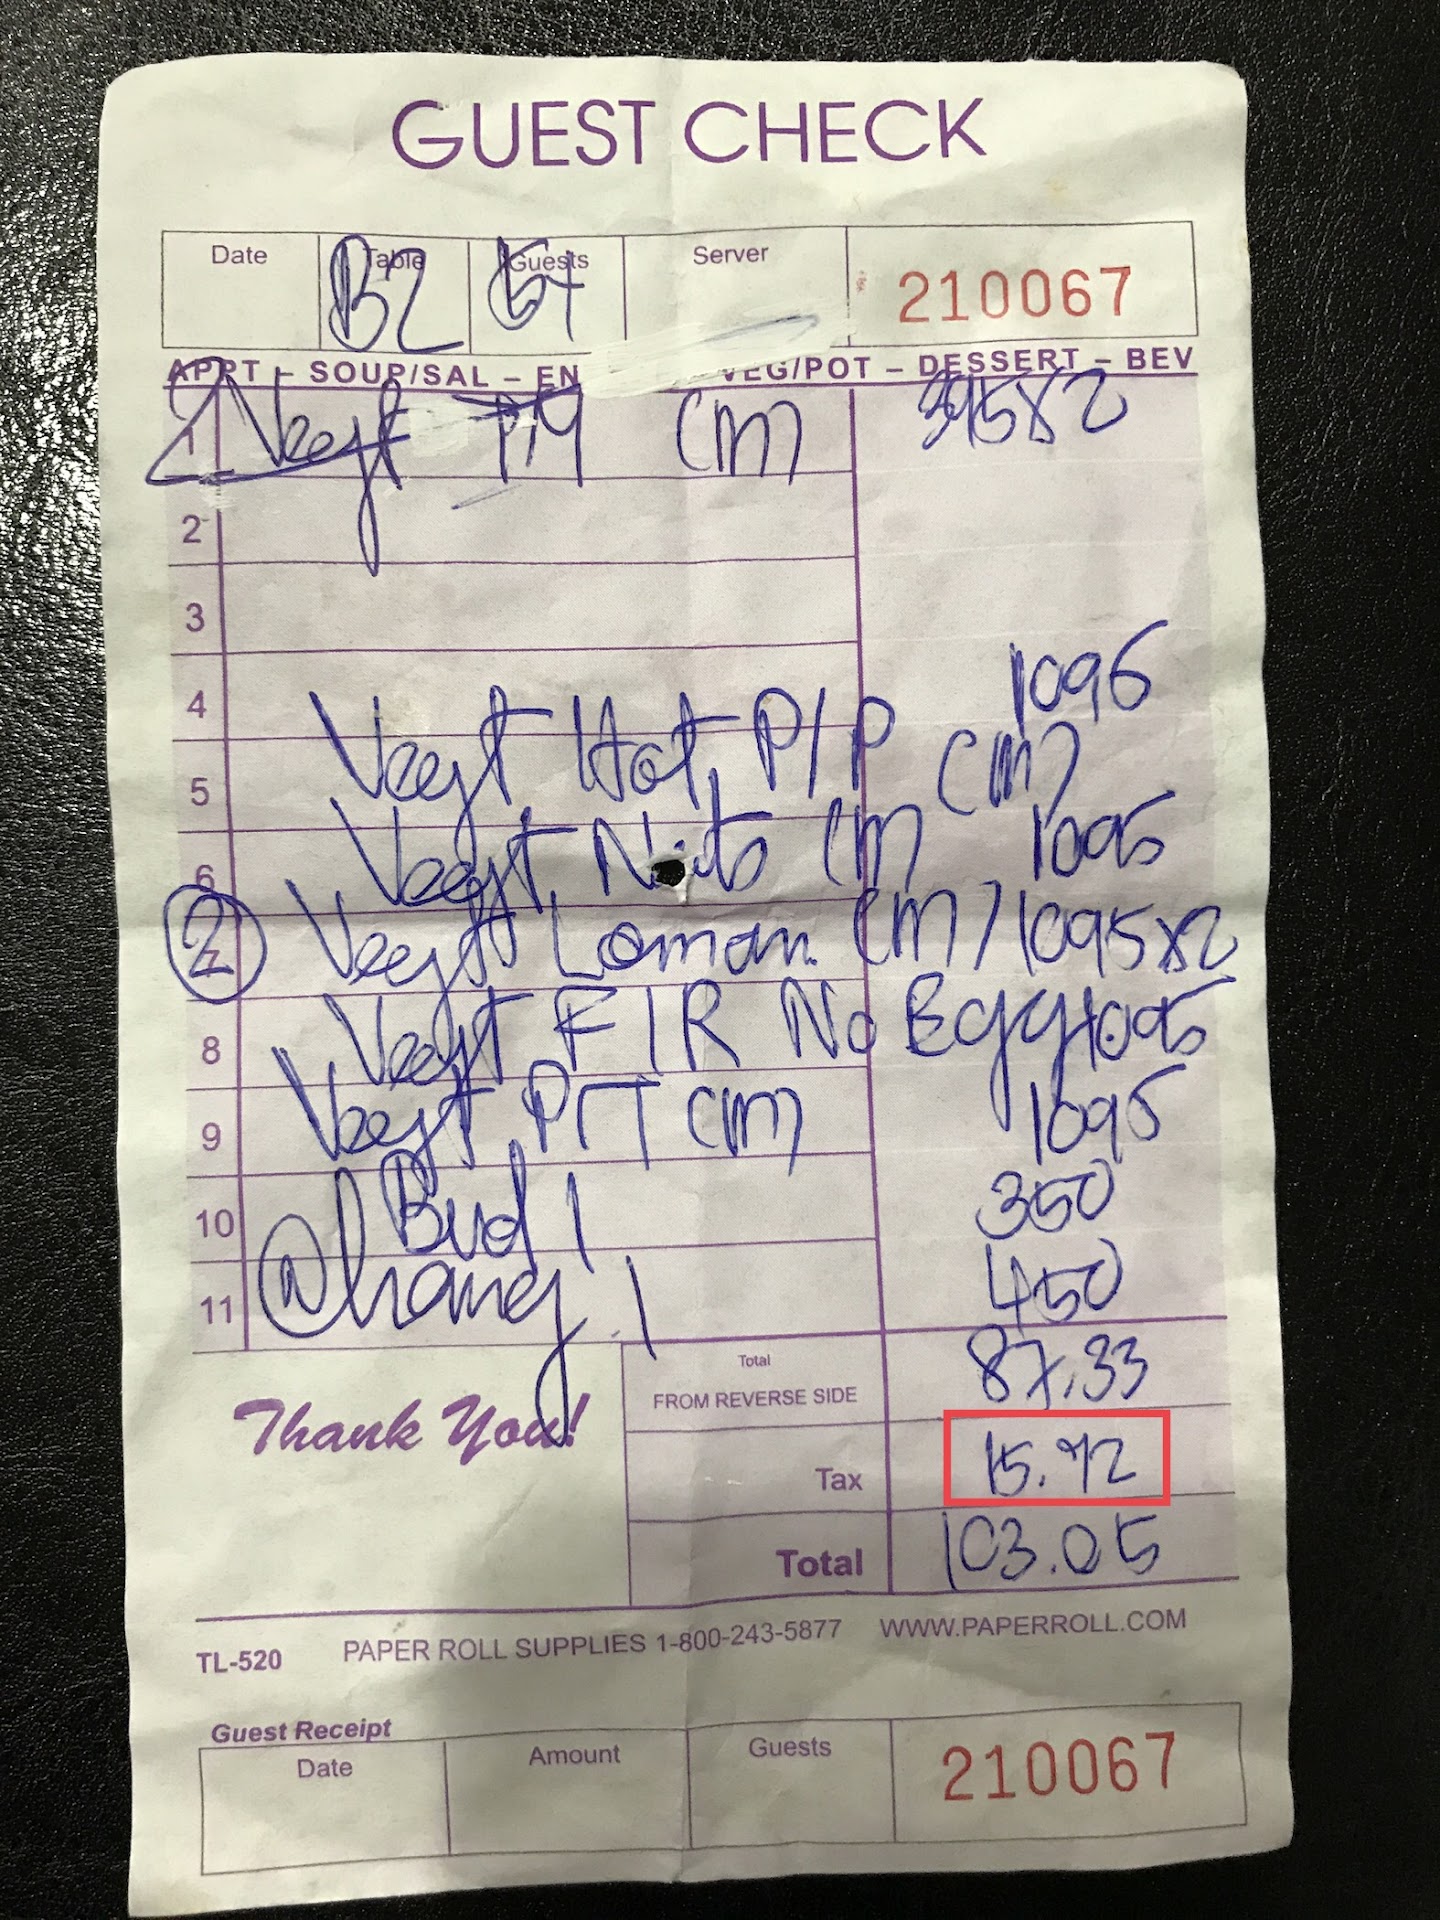 GUEST CHECK
Date Table Guests Server
B2 210067
APPT – SOUP/SAL – EN VEG/POT – DESSERT – BEV
1 2 Vegt (M) 395x2
2
3
4 1095
5 Vegt Hot P/P (M)
6 Vegt (M 1095
2 7 Vegt (M) 1095x2
8 Vegt F/R No Egg 1095
9 Vegt PTT (M) 1095
10 Bud 1 350
11 1 450
Total FROM REVERSE SIDE 87.33
Tax 15.72
Total 103.05
Thank You!
TL-520 PAPER ROLL SUPPLIES 1-800-243-5877 WWW.PAPERROLL.COM
Guest Receipt
Date Amount Guests 210067